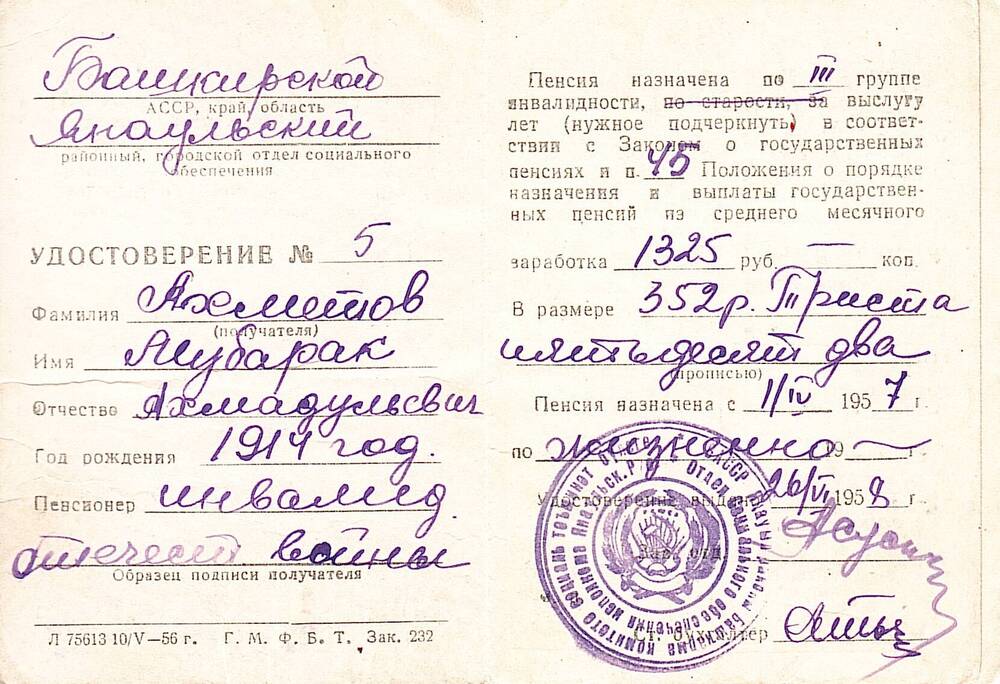 Башкирской
АССР, край, область
Янаульский
районный, городской отдел социального
обеспечения
УДОСТОВЕРЕНИЕ № 5
Фамилия Ахметов
(получателя)
Имя Мубарак
Отчество Ахмадульевич
Год рождения 1914 год.
Пенсионер инвалид
отечест войны
Образец подписи получателя
Л 75613 10/V—56 г. Г. М. Ф. Б. Т. Зак. 232
Пенсия назначена по III группе
инвалидности, по старости, за выслугу
лет (нужное подчеркнуть) в соответ-
ствии с Законом о государственных
пенсиях и п. 45 Положения о порядке
назначения и выплаты государствен-
ных пенсий из среднего месячного
заработка 1325 руб. — коп.
В размере 352р. Триста
пятьдесят два
(прописью)
Пенсия назначена с 1/IV 1957 г.
по жизненно 19 — г.
Удостоверение выдано 26/VI 1958 г.
Зав. отд.
Ст. бухгалтер